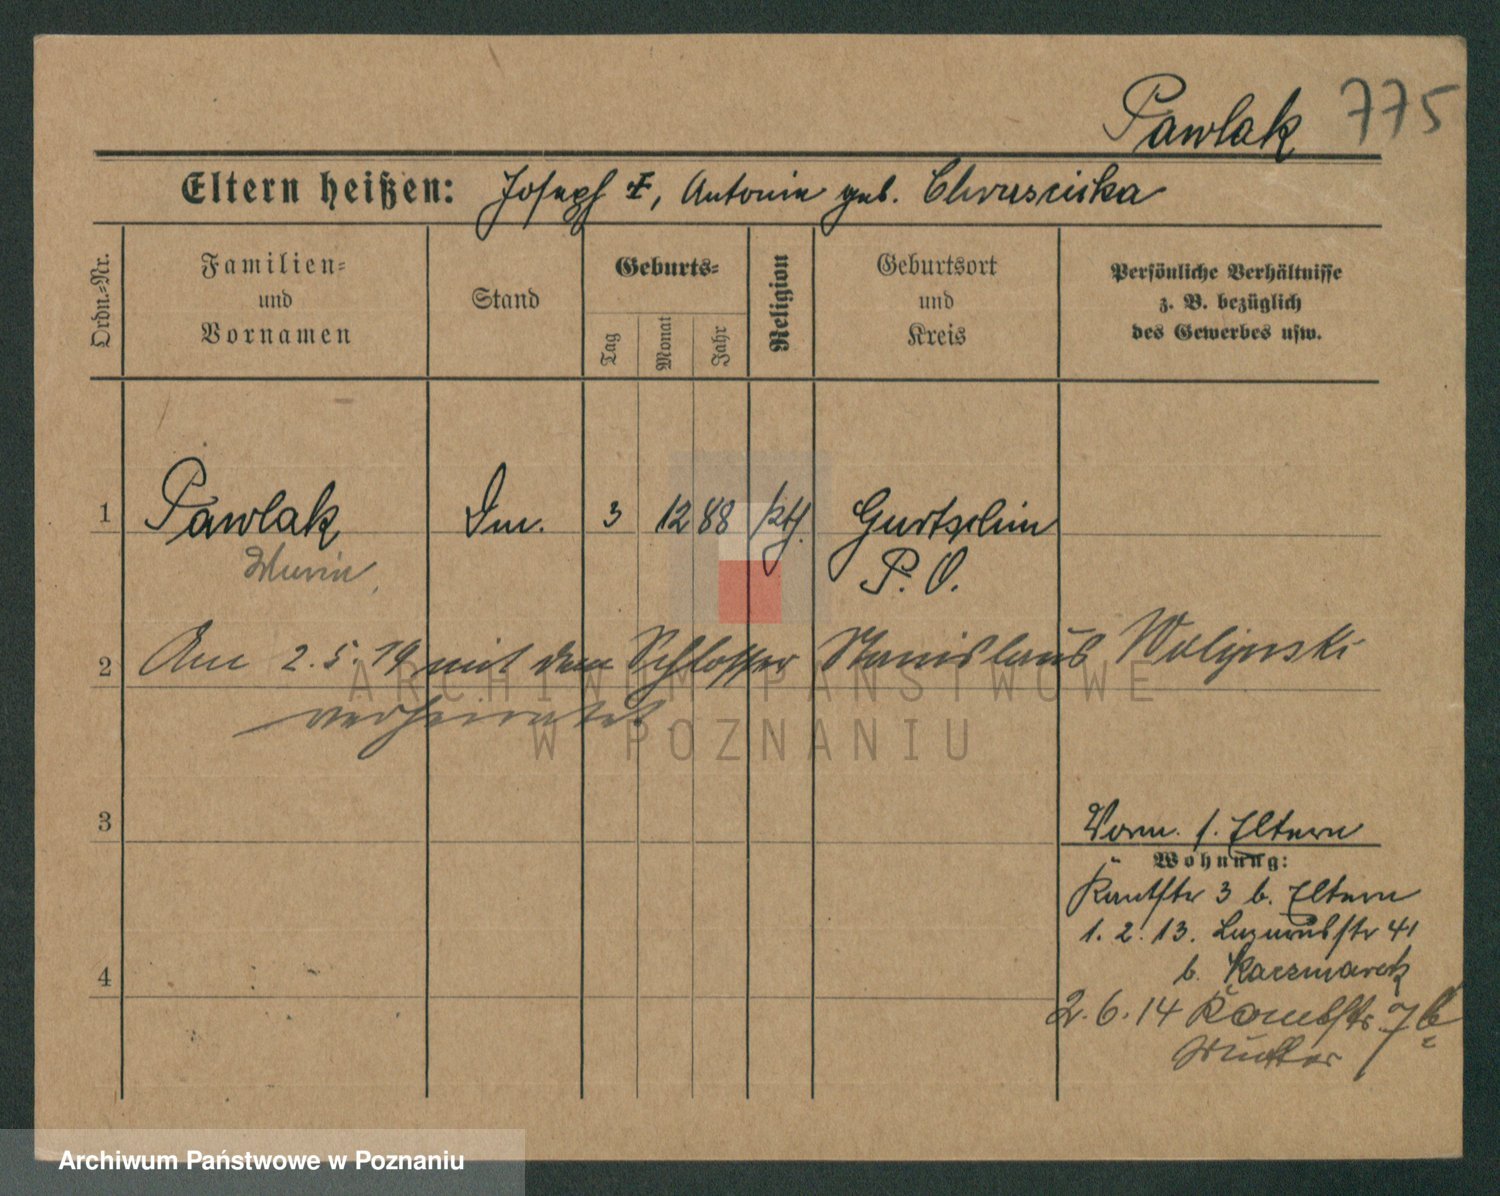 Pawlak 775
Eltern heißen: Joseph ‡, Antonie geb. Chrusciska
Ordn.-Nr.
Familien-
und
Vornamen
Stand
Geburts-
Tag
Monat
Jahr
Religion
Geburtsort
und
Kreis
Persönliche Verhältnisse
z. B. bezüglich
des Gewerbes usw.
1 Pawlak 3 12 88 kth. Gurtschin
P. O.
2 Am 2. 5. 19 mit dem Schlosser Stanislaus Wolynski
verheiratet.
3
Vorm. s. Eltern
Wohnung:
Kantstr 3 b. Eltern
1. 2. 13. 41
4
b. Kaczmarek
2. 6. 14 7
Mutter
ARCHIWUM PAŃSTWOWE
W POZNANIU
Archiwum Państwowe w Poznaniu